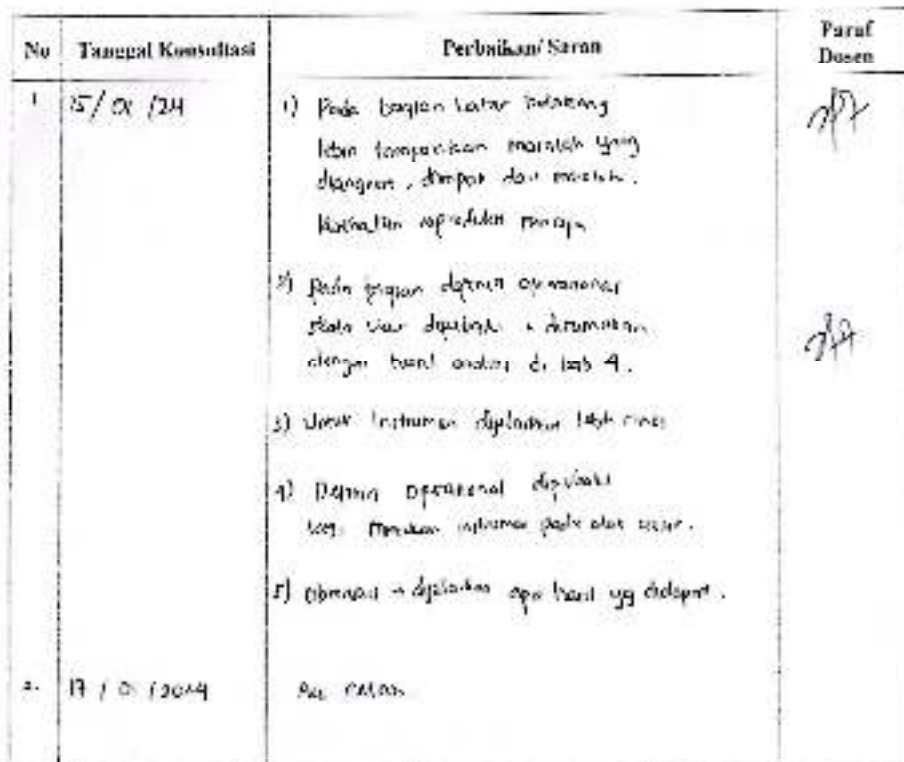 No Tanggal Konsultasi Perbaikan/ Saran Paraf Dosen
1. 15/ 01 /24
1) Pada bagian latar belakang
lebih tampakkan masalah yang
diangkat, dampak dari masalah.
kesehatan reproduksi remaja
2) Pada bagian definisi operasional
skala ukur diperbaiki
dengan hasil analisis di bab 4.
3) Untuk Instrumen dijelaskan lebih rinci
4) Definisi Operasional diperbaiki
lagi. instrumen pada alat ukur.
5) Observasi → dijelaskan apa hasil yg didapat.
2. 17 / 01 / 2024
Acc